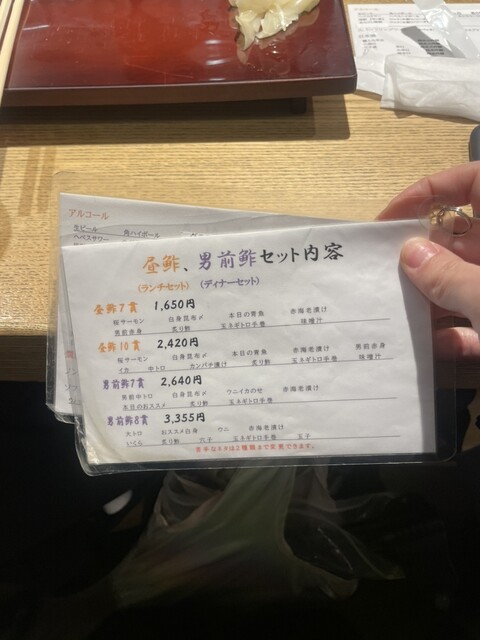 アルコール
生ビール 角ハイボール
ヘベスサワー
昼鮓、男前鮓セット内容
（ランチセット） （ディナーセット）
昼鮓7貫 1,650円
桜サーモン 白身昆布〆 本日の青魚 赤海老漬け
男前赤身 炙り鮃 玉ネギトロ手巻 味噌汁
昼鮓10貫 2,420円
桜サーモン 白身昆布〆 本日の青魚 赤海老漬け 男前赤身
イカ 中トロ カンパチ漬け 炙り鮃 玉ネギトロ手巻 味噌汁
男前鮓7貫 2,640円
男前中トロ 白身昆布〆 ウニイカのせ 赤海老漬け
本日のおススメ 炙り鮃 玉ネギトロ手巻
男前鮓8貫 3,355円
大トロ おススメ白身 ウニ 赤海老漬け
いくら 炙り鮃 穴子 玉ネギトロ手巻 玉子
苦手なネタは2種類まで変更できます。